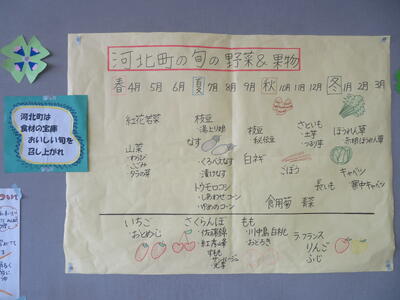 河北町の旬の野菜&果物
春 4月 5月 6月 夏 7月 8月 9月 秋 10月 11月 12月 冬 1月 2月 3月
紅花若菜
山菜
・わらび
・こごみ
・タラの芽
枝豆
・湯上り娘
なす
・くろべえなす
・漬けなす
トウモロコシ
・しあわせコーン
枝豆
・秘伝豆
白ネギ
さといも
・土芋
ごぼう
長いも
食用菊
ほうれん草
・赤根ほうれん草
キャベツ
・寒中キャベツ
いちご
・おとめ心
さくらんぼ
・佐藤錦
・紅秀峰
すもも
もも
・川中島白桃
ラ・フランス
りんご
・ふじ
河北町は
食材の宝庫
おいしい旬を
召し上がれ